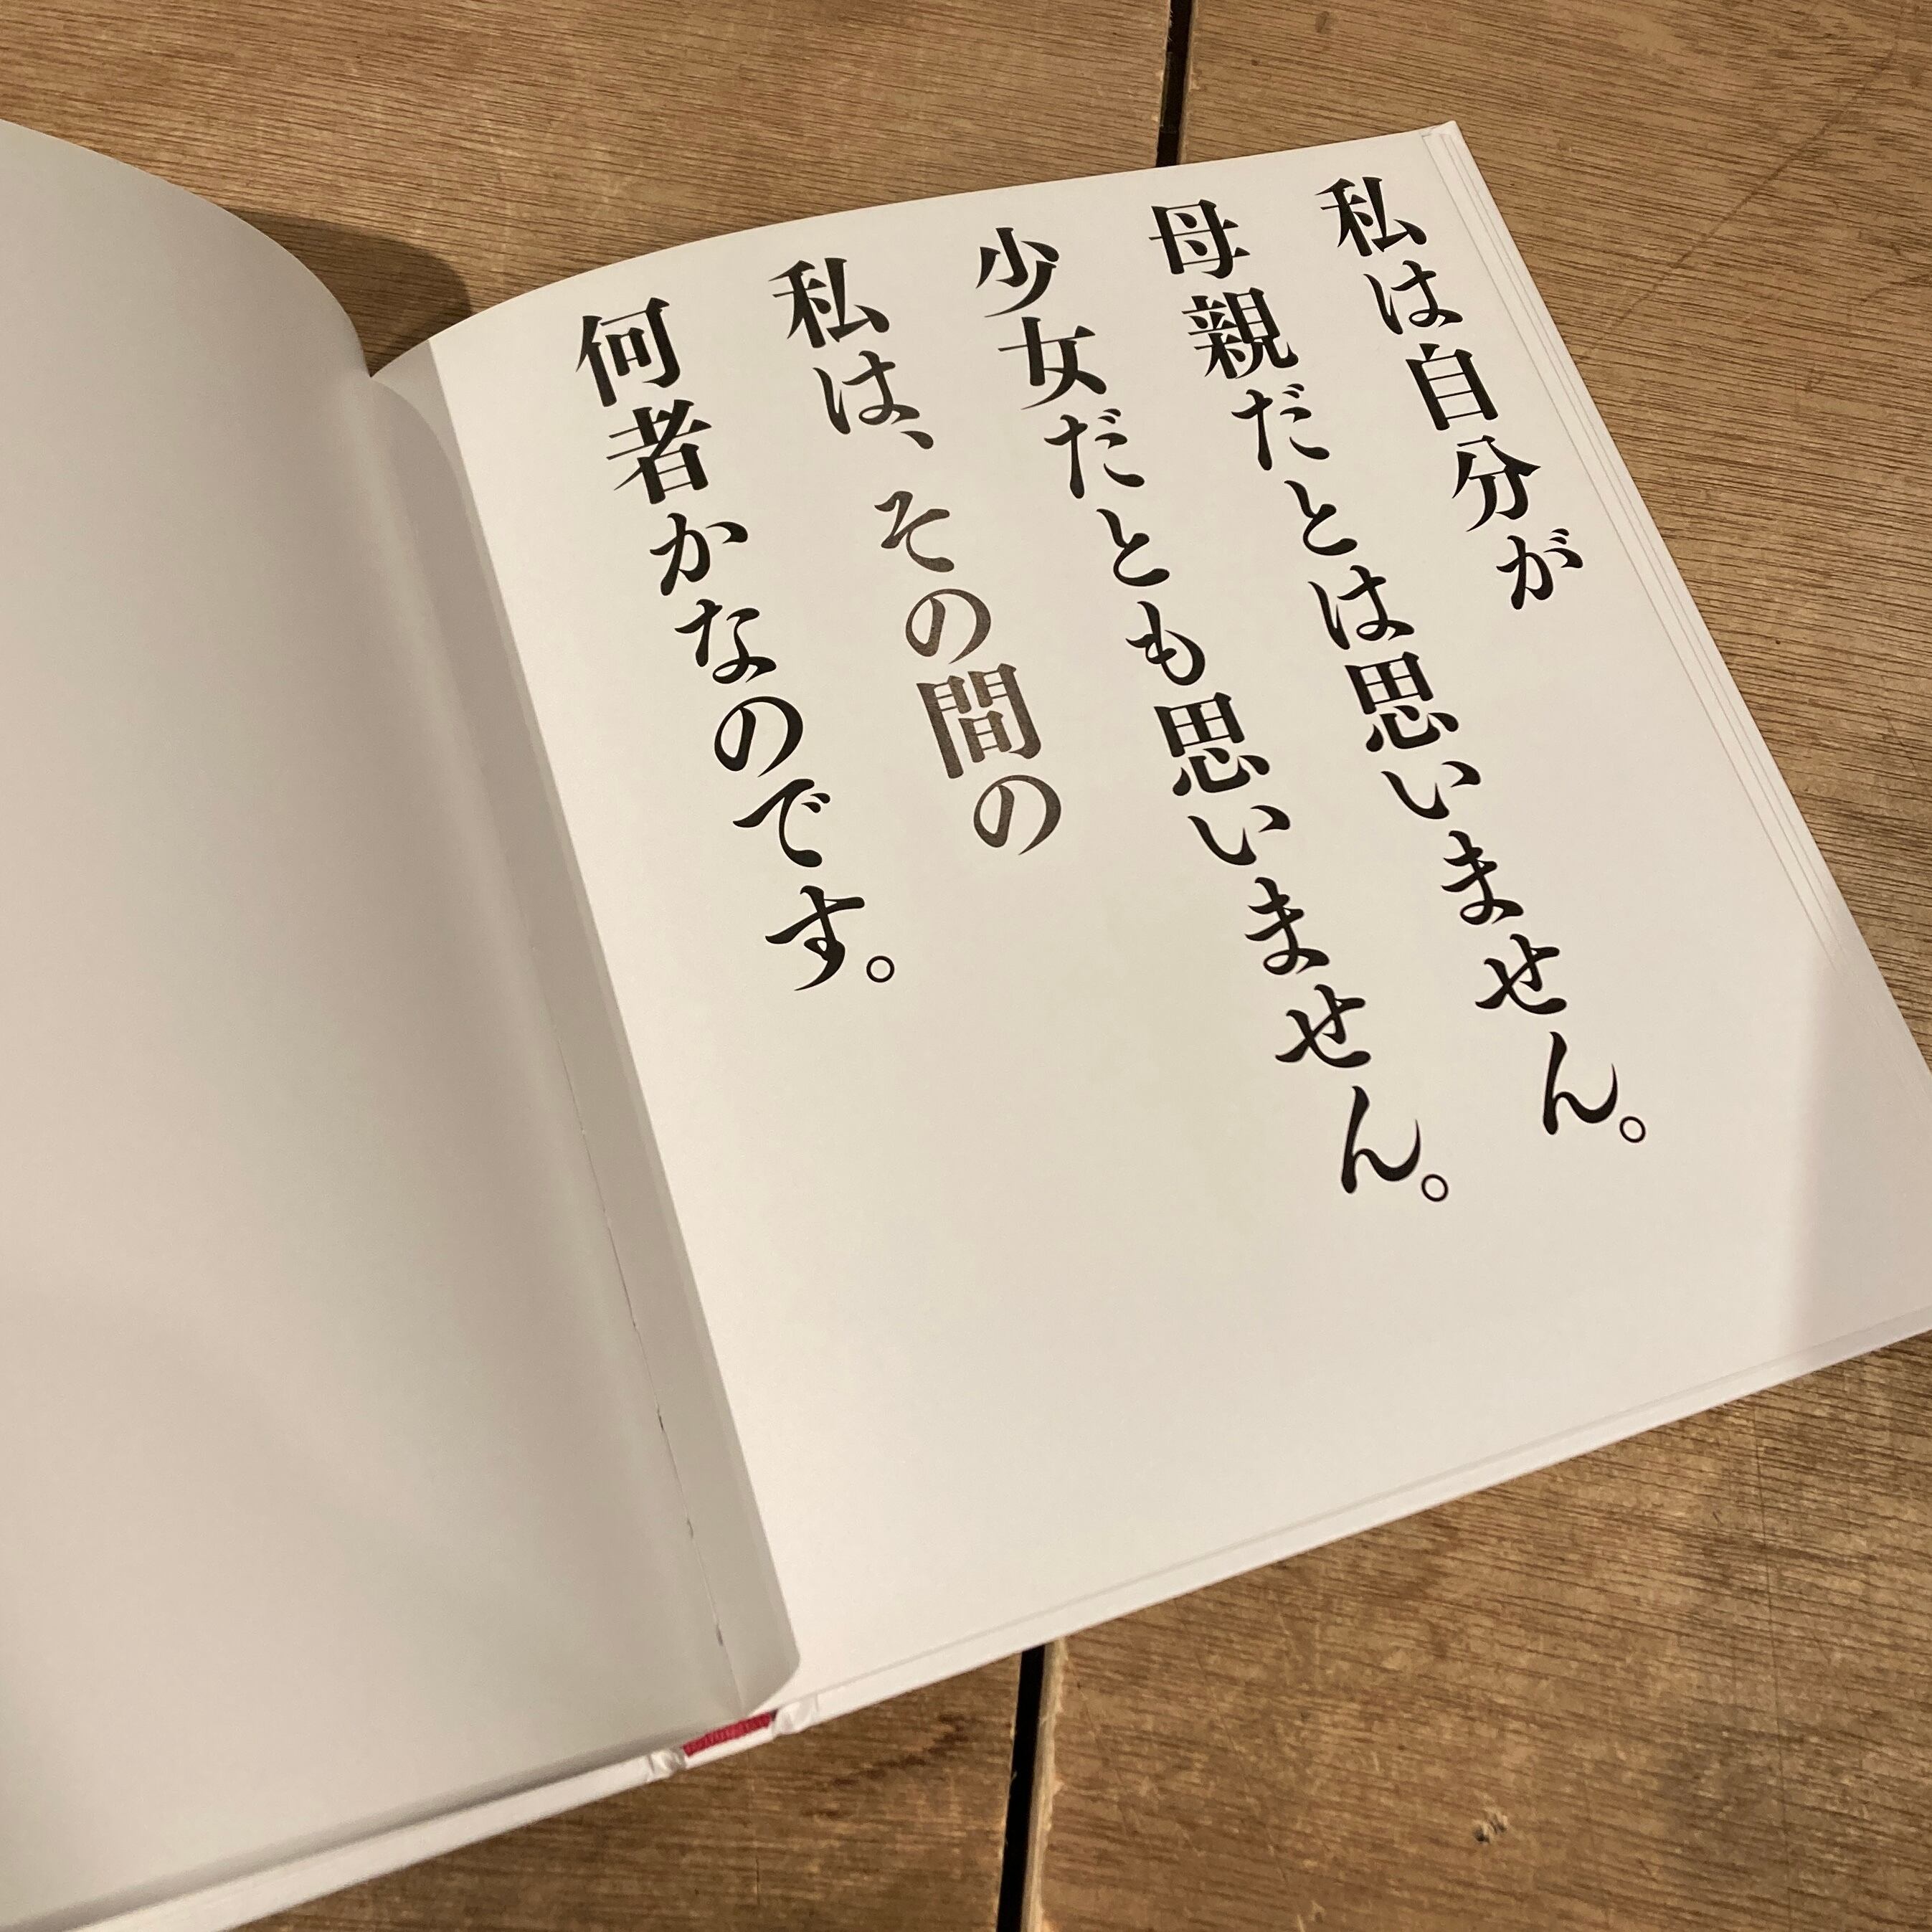 私は自分が
母親だとは思いません。
少女だとも思いません。
私は、その間の
何者かなのです。